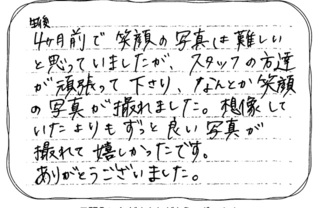 生後
4ヶ月前で笑顔の写真は難しい
と思っていましたが、スタッフの方達
が頑張って下さり、なんとか笑顔
の写真が撮れました。想像して
いたよりもずっと良い写真が
撮れて嬉しかったです。
ありがとうございました。